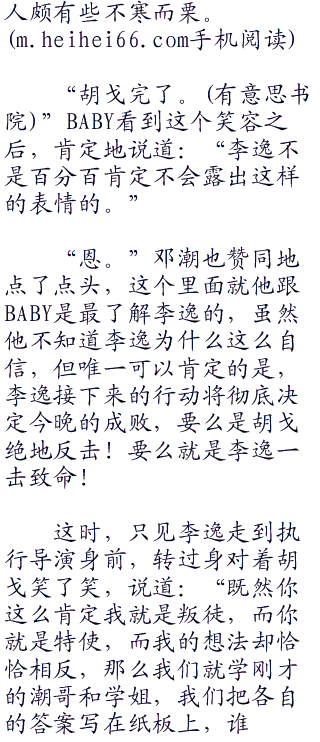 人颇有些不寒而栗。
(m.heihei66.com手机阅读)
“胡戈完了。(有意思书
院)”BABY看到这个笑容之
后，肯定地说道：“李逸不
是百分百肯定不会露出这样
的表情的。”
“恩。”邓潮也赞同地
点了点头，这个里面就他跟
BABY是最了解李逸的，虽然
他不知道李逸为什么这么自
信，但唯一可以肯定的是，
李逸接下来的行动将彻底决
定今晚的成败，要么是胡戈
绝地反击！要么就是李逸一
击致命！
这时，只见李逸走到执
行导演身前，转过身对着胡
戈笑了笑，说道：“既然你
这么肯定我就是叛徒，而你
就是特使，而我的想法却恰
恰相反，那么我们就学刚才
的潮哥和学姐，我们把各自
的答案写在纸板上，谁